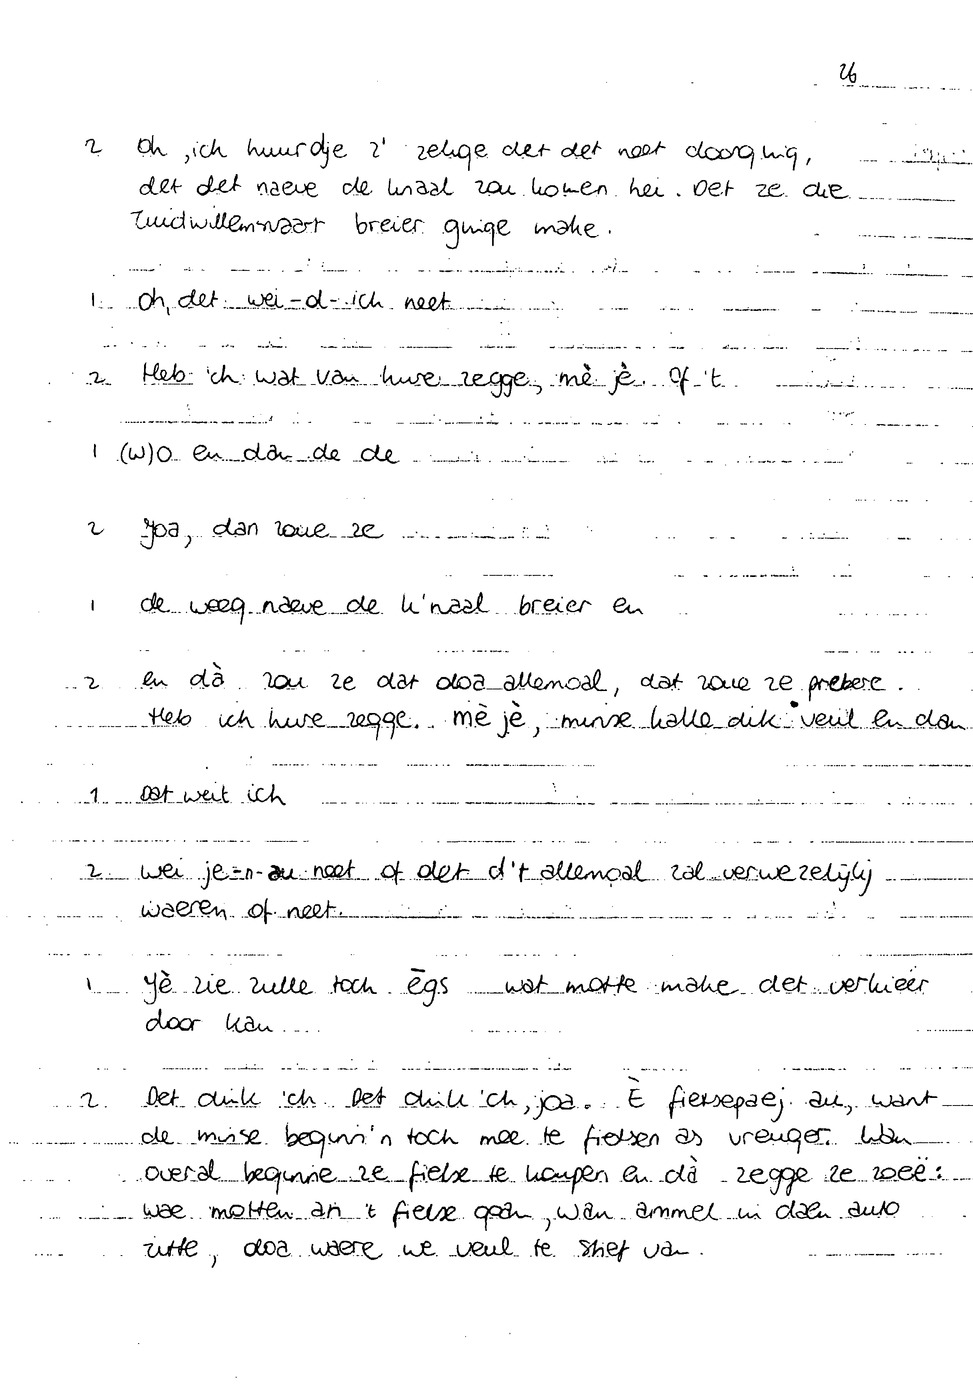 26
2 Oh, ich huurdje z' zelige det det neet doorging,
det det naeve de knaal zou komen hei. Det ze die
Zuidwillemsvaart breier ginge make.
1. Oh, det wei-d-ich neet
2. Heb 'ch wat van hure zegge, mè jè. Of 't
1 (w)o en dan de de
2 Joa, dan zoue ze
1 de weeg naeve de k'naal breier en
2 en dà zou ze dat doa allemoal, dat zoue ze probere.
Heb ich hure zegge. mè jè, minse kalle dik veul en dan
1 Dat weit ich
2. wei je-n-au neet of det d't allemoal zal verwezelijkj
waeren of neet.
1 Yè zie zulle toch ēgs wat motte make det verkieër
door kan
2. Det dink 'ch. Det dink 'ch, joa. È fietsepaej au, want
de minse beginn'n toch mee te fietsen as vreuger. Wan
overal beginne ze fietse te koupen en dà zegge ze zoeë:
wae motten an 't fietse goan, wan ammel in daen auto
zitte, doa waere we veul te stief van.